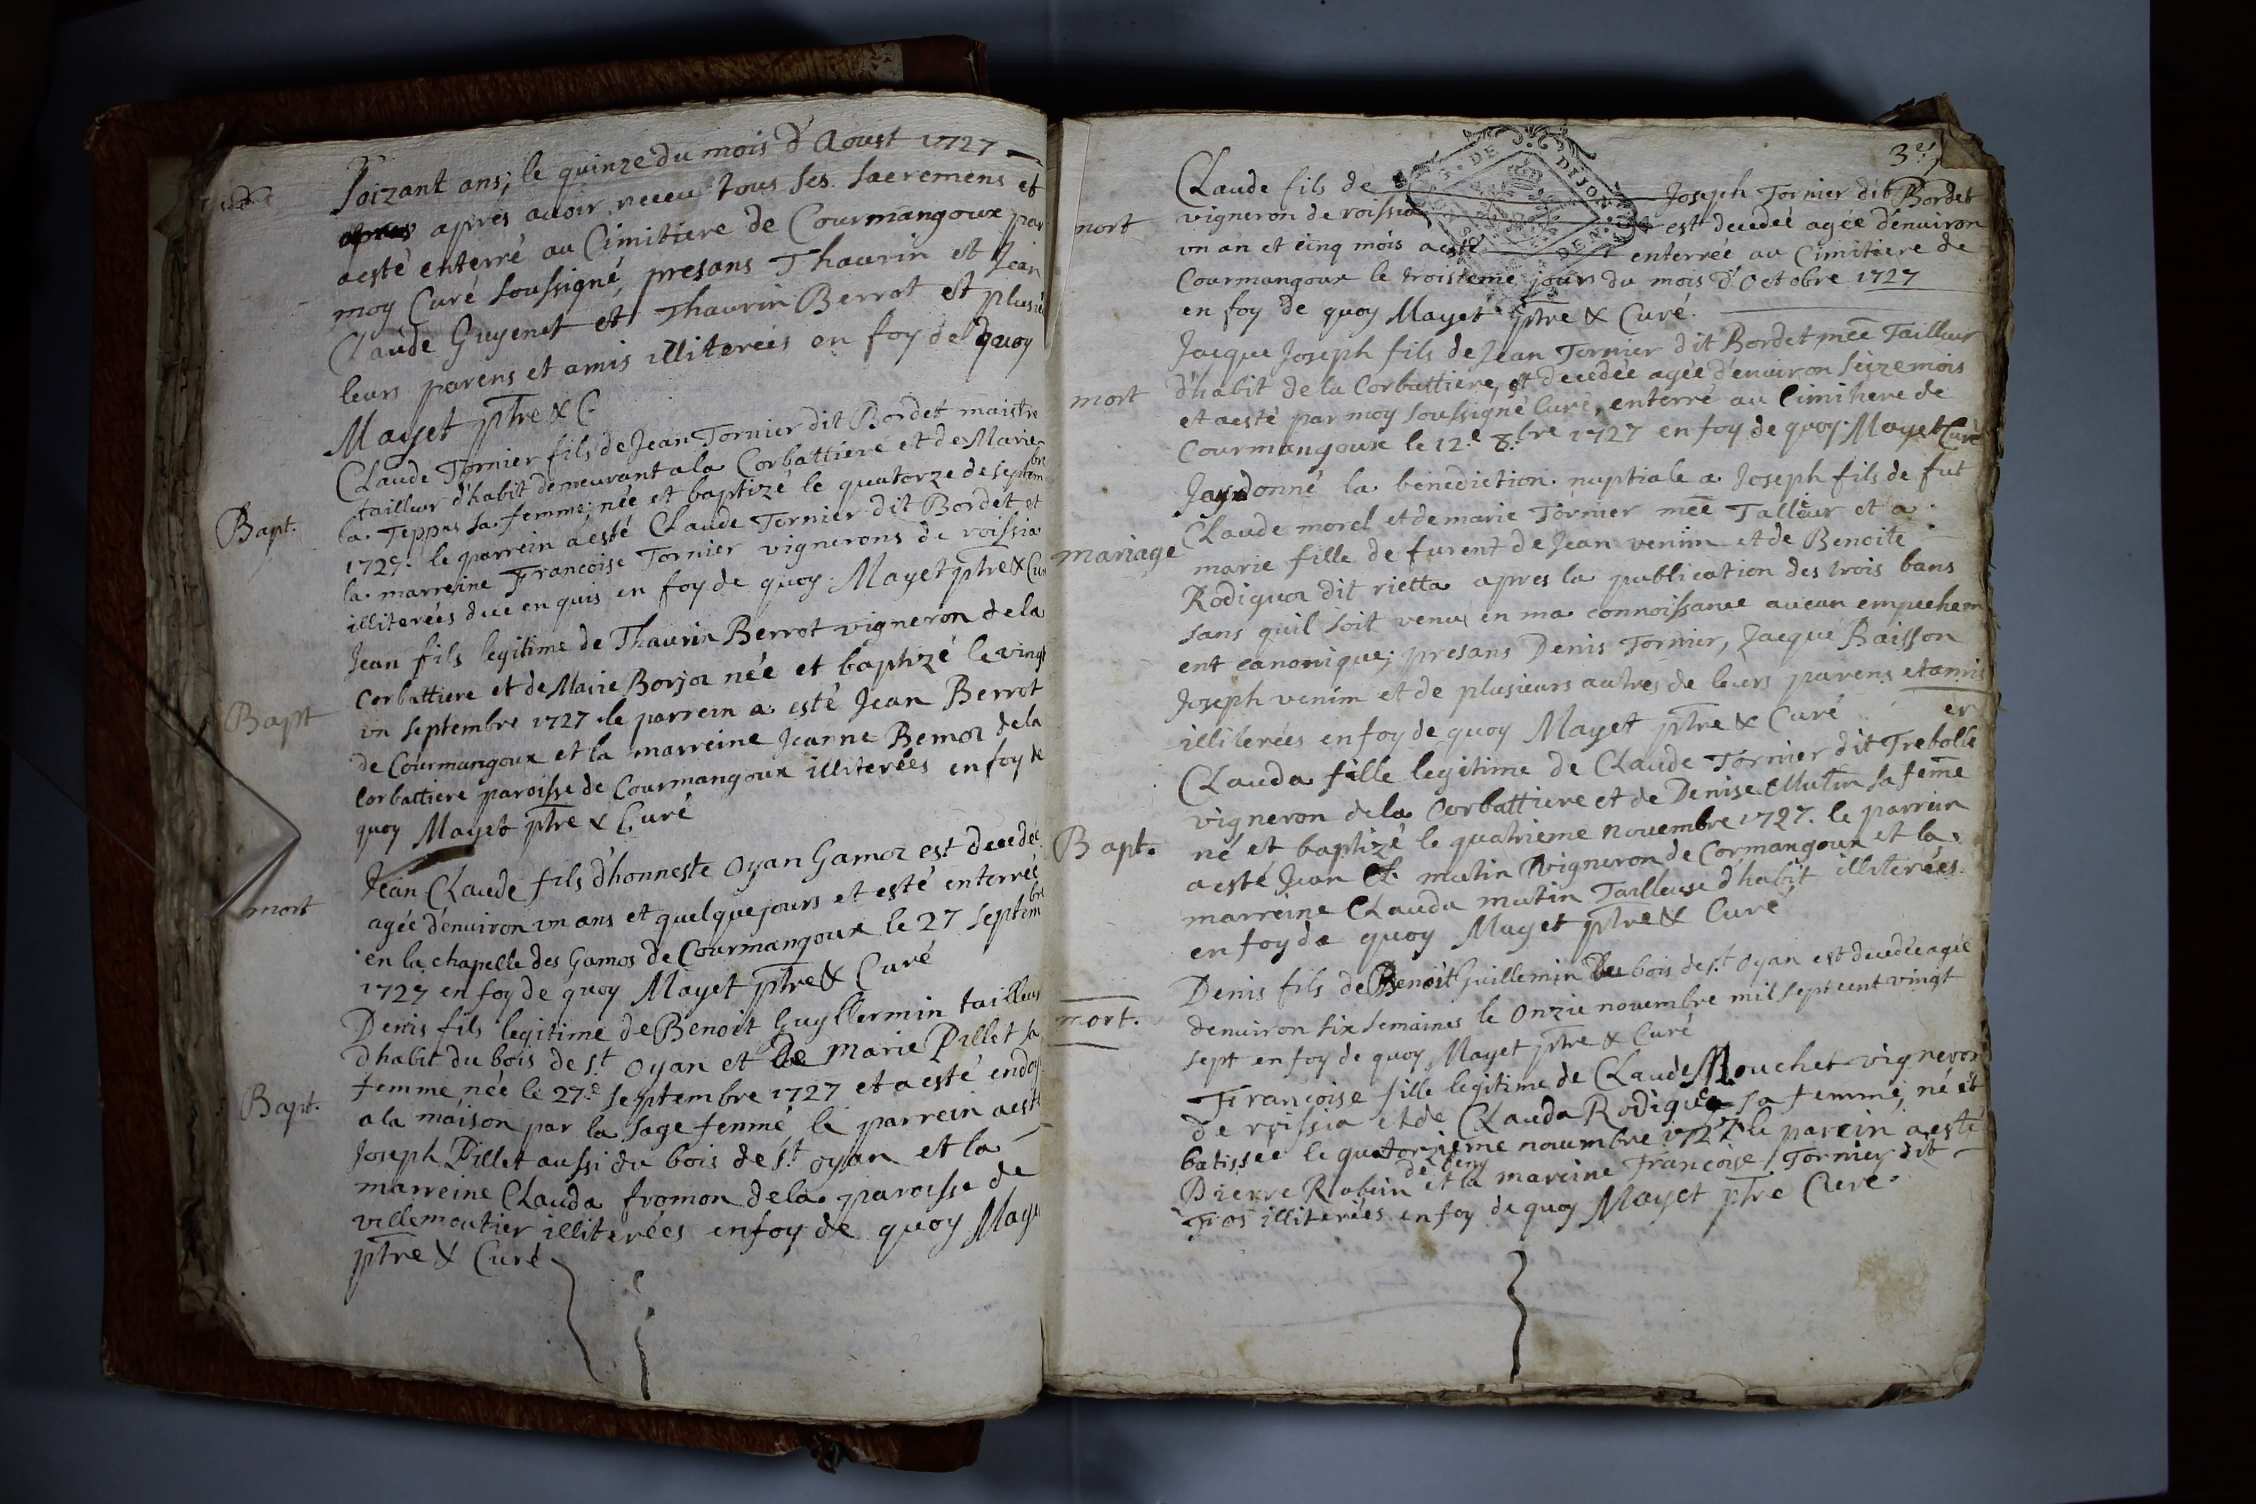 soizant ans, le quinze du mois d'Aoust 1727
après avoir receu tous ses sacremens et
a esté enterré au Cimitiere de Courmangoux par
moy Curé soussigné, presans Thaurin et Jean
Claude Guyenet et Thaurin Berrot et plusie
leurs parens et amis illiterées en foy de quoy
Mayet ptre & C.
Claude Tornier fils de Jean Tornier dit Bordet maistre
tailleur d'habit demeurant a la Corbattiere et de Marie
Bapt. la Teppes sa femme, née et baptizé le quatorze de septembre
1727. le parrein a esté Claude Tornier dit Bordet et
la marreine Francoise Tornier vignerons de roissia
illiterées de ce enquis en foy de quoy. Mayet ptre & Cu
Jean fils legitime de Thaurin Berrot vigneron de la
Corbattiere et de Marie Borjoz née et baptizé le vingt
Bapt un septembre 1727 le parrein a esté Jean Berrot
de Courmangoux et la marreine Jeanne Bemoz de la
Corbattiere paroisse de Courmangoux illiterées en foy de
quoy Mayet ptre & Curé
Jean Claude fils d'honneste Oyan Gamoz est decedé
mort agée d'environ un ans et quelque jours et esté enterrée
en la chapelle des Gamos de Courmangoux le 27 septembre
1727 en foy de quoy Mayet ptre & Curé
Denis fils legitime de Benoit Guyllermin tailleur
d'habit du bois de s.t Oyan et de Marie Pillet sa
femme née le 27.e septembre 1727 et a esté endoy
Bapt. a la maison par la sage femme, le parrein a esté
Joseph Pillet aussi du bois de s.t oyan et la
marreine Clauda fromon de la paroisse de
villemoutier illiterées en foy de quoy Maye
ptre & Curé
3e
Claude fils de Joseph Tornier dit Bordet
mort vigneron de roissia est decedé agée d'environ
un an et cinq mois a esté enterrée au Cimitiere de
Courmangoux le troisieme jours du mois d'Octobre 1727
en foy de quoy Mayet ptre & Curé.
Jacque Joseph fils de Jean Tornier dit Bordet mee Tailleur
mort d'habit de la Corbattiere, est decedée agée d'environ seize mois
et a esté par moy soussigné Curé, enterré au Cimitiere de
Courmangoux le 12.e 8.bre 1727 en foy de quoy. Mayet Curé
Jay donné la benediction nuptiale a Joseph fils de fut
Claude morel et de marie Tornier mee Talleur et a
mariage marie fille de furent de Jean venim et de Benoite
Rodiquoz dit rietta apres la publication des trois bans
sans quil soit venus en ma connoissance aucun empechem
ent canonique; presans Denis Tornier, Jacque Baisson
Joseph venim et de plusieurs autres de leurs parens et amis
illiterées en foy de quoy Mayet ptre & Curé
Clauda fille legitime de Claude Tornier dit Trebolle
vigneron de la Corbattiere et de Denise Mutin sa feme
Bapt. né et baptizé le quatrieme novembre 1727. le parrein
a esté Jean mutin vigneron de Cormangoux et la
marreine Clauda mutin Tailleuse d'habit illiterées.
en foy de quoy Mayet ptre & Curé
Denis fils de Benoit Guillemin du bois de s.t Oyan est decedée agée
mort. denviron six semaines le Onzie novembre mil sept cent vingt
sept en foy de quoy Mayet ptre & Curé
Francoise fille legitime de Claude Mouchet vigneron
de roissia et de Clauda Rodique sa femme, né et
batissee le quatorzieme novembre 1727 le parein a esté
Pierre Robin et la mareine Francoise Tornier dit
Fios illiterées en foy de quoy Mayet ptre Cure.